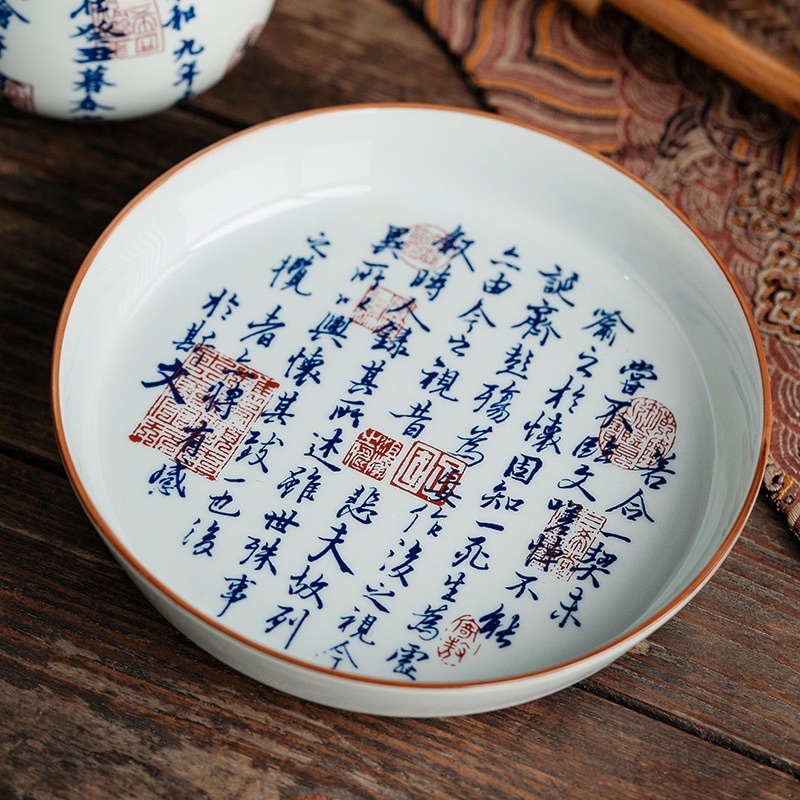 和九年
癸丑暮春
會
若合一契未
嘗不臨文嗟悼不能
喻之於懷固知一死生為虛
誕齊彭殤為妄作後之視今
亦由今之視昔悲夫故列
叙時人錄其所述雖世殊事
異所以興懷其致一也後
之攬者亦將有感
於斯文